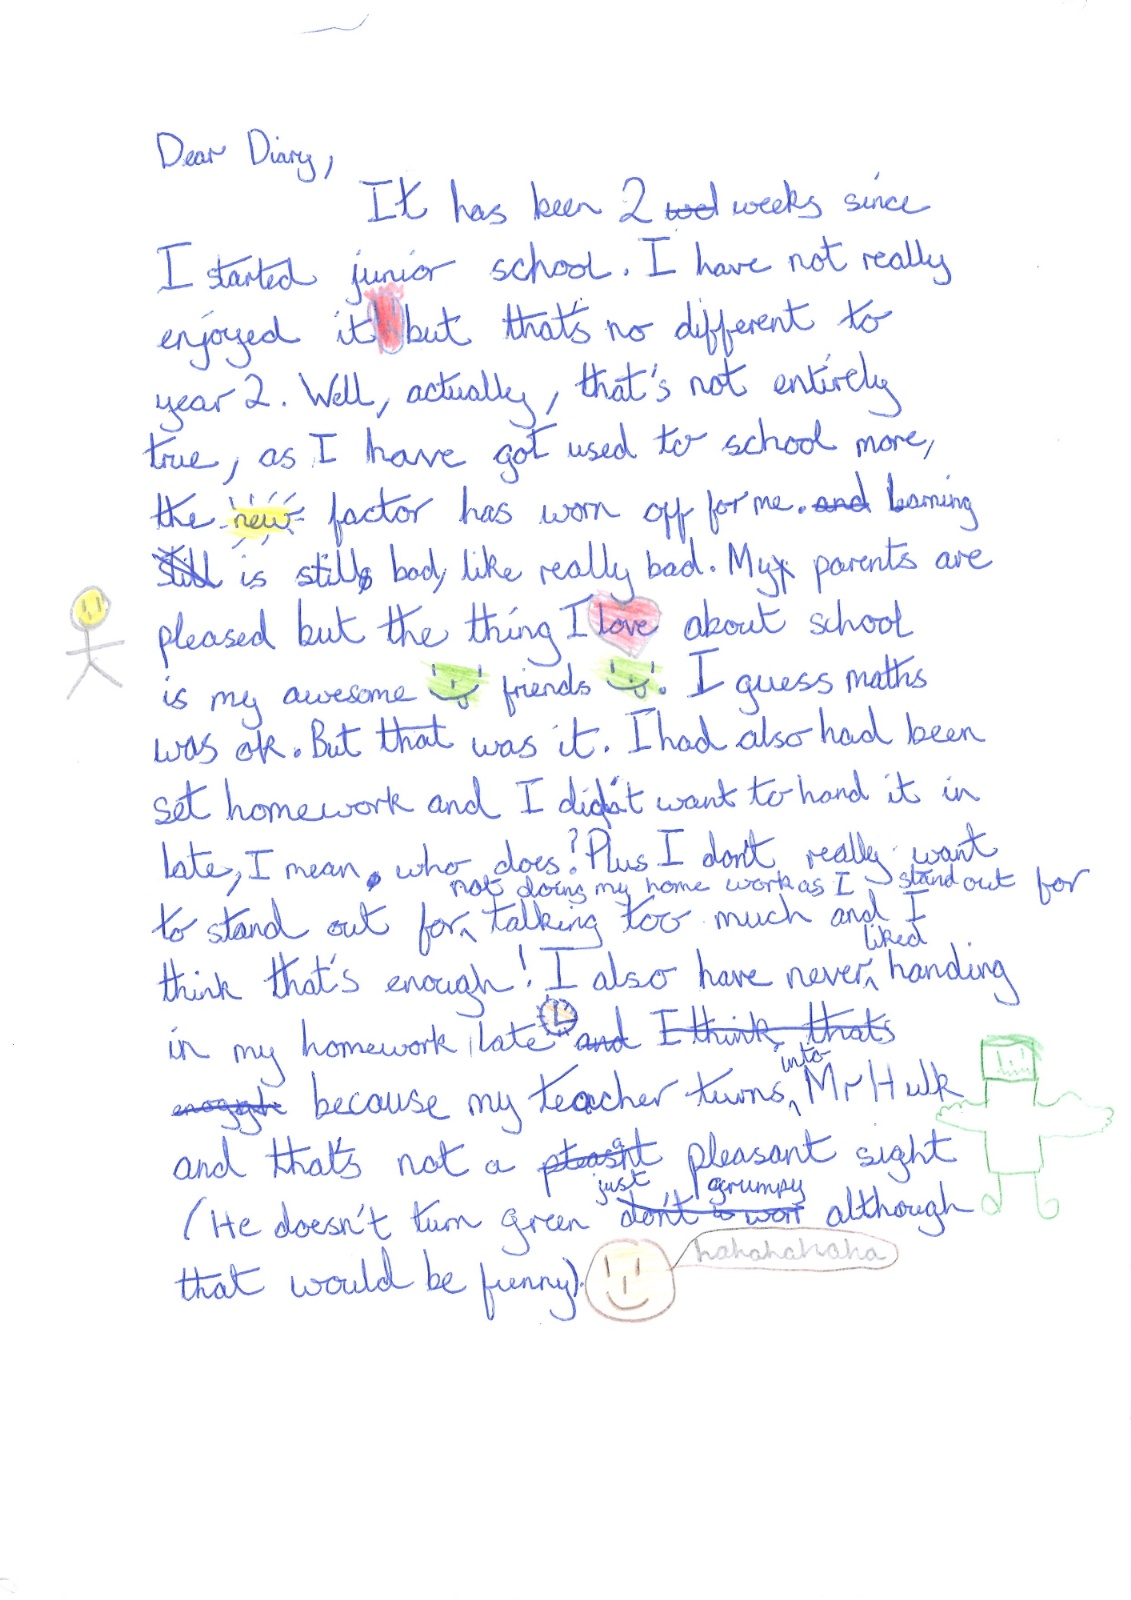 Dear Diary,
It has been 2 wed weeks since
I started junior school. I have not really
enjoyed it but that's no different to
year 2. Well, actually, that's not entirely
true, as I have got used to school more,
the new factor has worn off for me. and learning
still is still bad, like really bad. My parents are
pleased but the thing I love about school
is my awesome friends. I guess maths
was ok. But that was it. I had also had been
set homework and I didn't want to hand it in
late, I mean, who does? Plus I don't really want
not doing my home work as I stand out for
to stand out for talking too much and I
liked
think that's enough! I also have never handing
in my homework late and I think thats
into
because my teacher turns Mr Hulk
and that's not a pleasant sight
just grumpy
(He doesn't turn green don't although
that would be funny).
hahahahaha